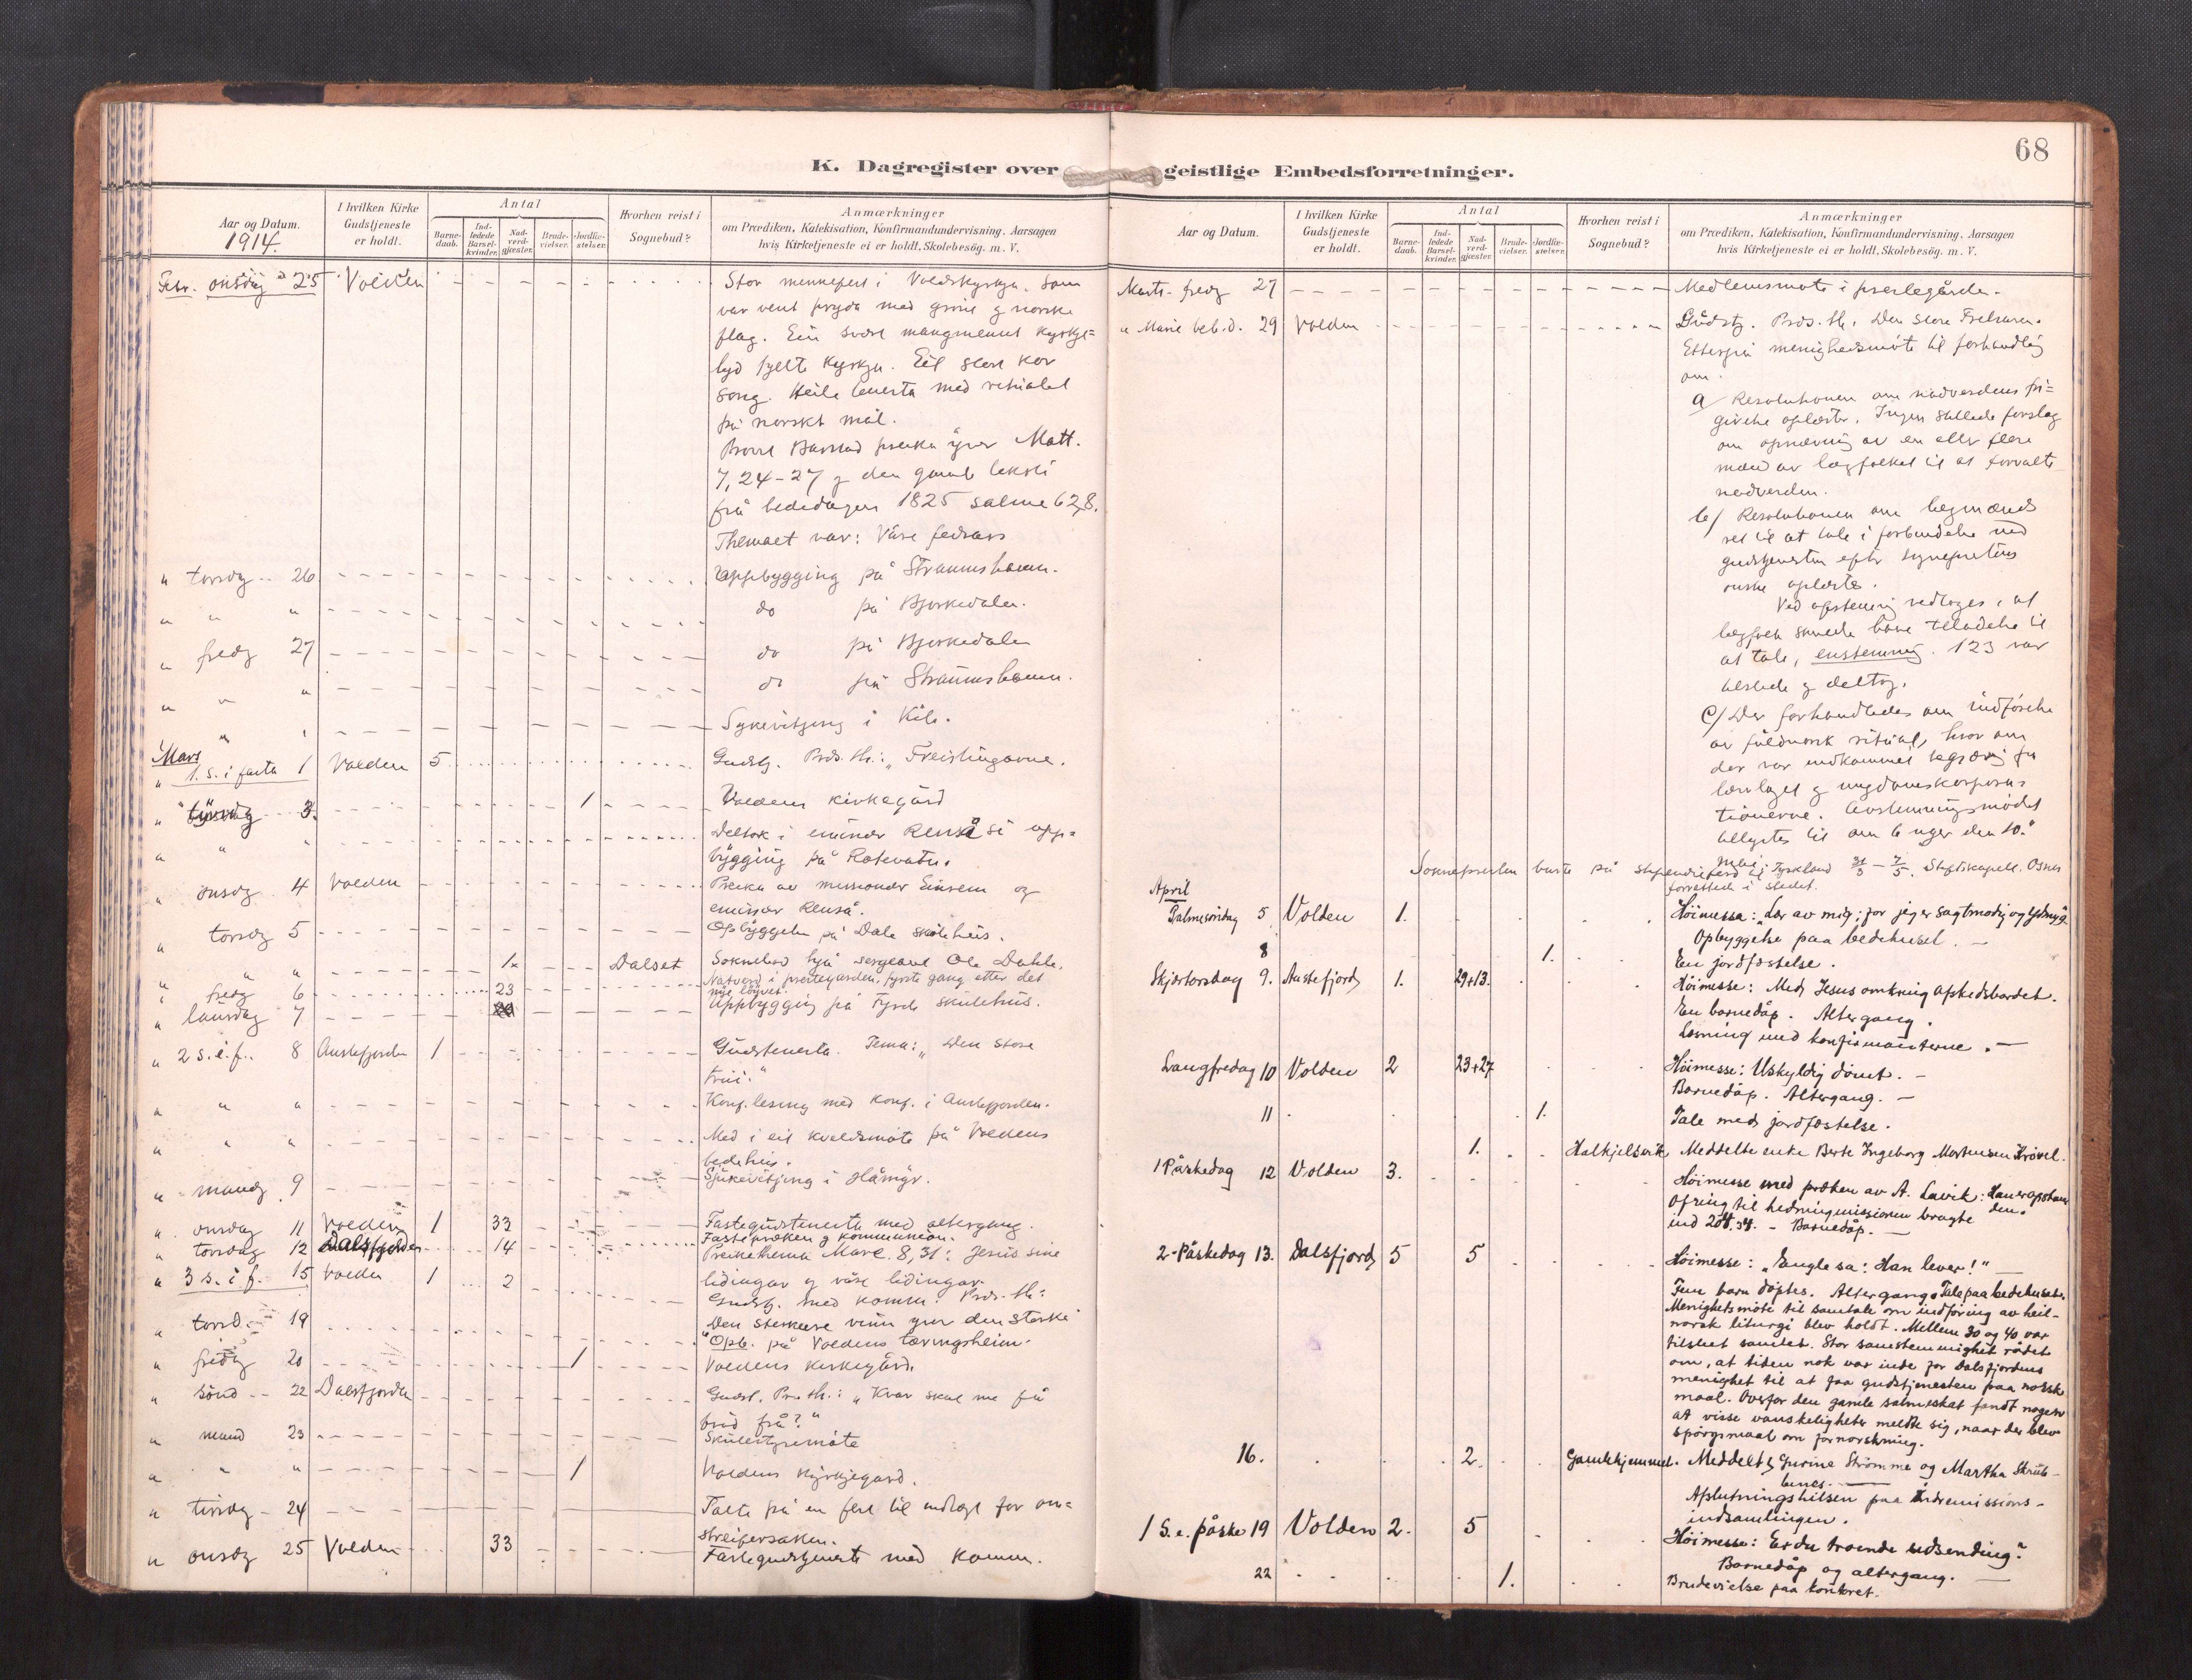 68
K. Dagregister over geistlige Embedsforretninger.
Aar og Datum.
1914.
I hvilken Kirke
Gudstjeneste
er holdt.
Antal
Barne-
daab.
Ind-
ledede
Barsel-
kvinder.
Nad-
verd-
gjæster.
Brude-
vielser.
Jordfæ-
stelser.
Hvorhen reist i
Sognebud?
Anmærkninger
om Prædiken, Katekisation, Konfirmandundervisning, Aarsagen
hvis Kirketjeneste ei er holdt, Skolebesög. m. V.
Febr. onsdag 25 Volden Stor minnefest i Voldskyrkja. Som
var vent pryda med grøne og norske
flag. Ein svært mangment kyrkje=
lyd fyllte kyrkja. Eit stort kor
song. Heile tenesta med ritualet
på norskt mål.
preika yver Matt.
7,24-27 og den gamle teksti
frå bededagen 1825 salme 62,8.
Themaet var: Våre fedrars
" torsdg 26 Uppbygging på Straumshamn.
" " " do på Bjørkedalen.
" fredg 27 do på Bjørkedalen
" " " do på Straumshamn.
" Sykevitjing i Kile.
Mars
" 1. s. i fasta 1 Volden 5 Gudstj. Prds. th.: "Freistingarne.
" tirsdg 3. 1 Voldens kirkegård
" " " Deltok i emissær Renså si upp=
bygging på Rotevatn.
" onsdg 4 Volden Preika av missionær Einrem og
emissær Renså.
" torsdg 5 Opbyggelse på Dale skulehus.
" " " 1. Dalset Soknebod hjå sergeant Ola Dahle.
" fredg 6 23 Natverd i prestegarden, fyrste gang etter det
nye løyvet.
" laurdag 7 Uppbygging på Fyrde skulehus.
" 2 s. i. f. 8 Austefjorden 1 Gudstenesta. Tema: "Den store
trui."
" " " Konf. lesing med konf. i Austefjorden.
" " " Med i eit kveldsmøte på Voldens
bedehus.
" mandg 9 Sjukevitjing i Håmyr.
" onsdag 11 Volden 1 33 Fastegudstenesta med altergang.
" torsdag 12 Dalsfjorden 14 Fastepræken og kommunion.
Preikethema Marc. 8,31: Jesus sine
lidingar og våre lidingar.
" 3 s. i f. 15 Volden 1 2 Gudstj. med komm. Prds. th:
Den sterkere vinn yver den sterke
" torsd. 19 Opb. på Voldens tæringsheim.
" fredg 20 1 Voldens kirkegård.
" sönd 22 Dalsfjorden Gudst. Pr. th.: "Kvar skal me få
brød frå?"
" mand 23 Skulestyremöte
" " " 1 Voldens kyrkjegard.
" tirsdg 24 Talte på en fest til indtægt for om=
streifersaken.
" onsdg 25 Volden 33 Fastegudstjeneste med komm.
Aar og Datum.
I hvilken Kirke
Gudstjeneste
er holdt.
Antal
Barne-
daab.
Ind-
ledede
Barsel-
kvinder.
Nad-
verd-
gjæster.
Brude-
vielser.
Jordfæ-
stelser.
Hvorhen reist i
Sognebud?
Anmærkninger
om Prædiken, Katekisation, Konfirmandundervisning, Aarsagen
hvis Kirketjeneste ei er holdt, Skolebesög. m. V.
Marts. fredg 27 Medlemsmøte i prestegården.
" Marie beb. d. 29 Volden Gudstj. Prds. th. Den store Frelsaren.
Etterpå menighedsmøte til forhandling
om.
a/ Resolutionen om nadverdens fri=
givelse oplæstes. Ingen stillede forslag
om opnævning av en eller flere
mænd av lægfolket til at forvalte
nadverden.
b/ Resolutionen om lægmænds
ret til at tale i forbindelse med
gudstjenesten efter sogneprestens
ønske oplæstes.
Ved afstemning vedtoges, at
lægfolk skulde have tilladelse til
at tale, enstemmig. 123 var
tilstede og deltog.
c/ Der forhandledes om indførelse
av fuldnorsk ritual, hvorom
der var indkommet begjæring fra
lærarlaget og ungdomskorporas=
tionerne. Avstemningsmødet
utlystes til om 6 uger den 10.
mai.
Soknepresten reiste på stipendieferd til Tyskland 31/3 – 7/5. Stiftskapell. Osnes
forrettede i stedet.
April
Palmesöndag 5 Volden 1. Höimessa: "Lær av mig; for jeg er sagtmodig og ydmyg."
Opbyggelse paa bedehuset.
8 1. En jordfæstelse.
Skjærtorsdag 9. Austefjord 1. 29+13. Höimesse: Med Jesus omkring afskedsbordet.
En barnedåp. Altergang.
Læsning med konfirmanterne.
Langfredag 10 Volden 2 23+27 Höimesse: Uskyldig dömt.
Barnedåp. Altergang.
11 1. Tale med jordfæstelse.
1. Halkjelsvik Meddelte enke Berte Ingeborg Mortensen Krövel.
1 Påskedag 12 Volden 3. Höimesse med præken av A. Lavik: Han er opstan-
den.
Ofring til hedningmissionen bragte
ind 204,34. - Barnedåp.
2- Påskedag 13. Dalsfjord 5 5 Höimesse: "Engle sa: Han lever!"
Fem barn döptes. Altergang. Tale paa bedehuset.
Menighetsmöte til samtale om indföring av heil-
norsk liturgi blev holdt. Mellem 30 og 40 var
tilslut samlet. Stor samstemmighet rådet
om, at tiden nok var inde for Dalsfjordens
menighet til at faa gudstjenesten paa norsk
maal. Overfor den gamle salmeskat fandt nogen
at visse vanskeligheter meldte sig, naar der blev
spörgsmaal om fornorskning.
16. 2. Gamlehjemmet. Meddelt Gurine Strömme og Martha Skrub-
benes.
Afslutningshilsen paa Indremissions-
indsamlingen.
1 S. e. påske 19 Volden 2. 5 Höimesse: Er du troende utsending?
Barnedåp og altergang.
22 1. Brudevielse paa kontoret.